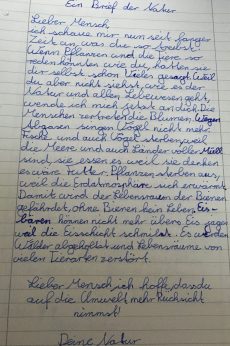 Ein Brief der Natur
Lieber Mensch,
ich schaue mir nun seit langer
Zeit an, was du so treibst.
Wenn Pflanzen und die Tiere so
reden könnten wie du, hätten sie
dir selbst schon Vieles gesagt. Weil
du aber nicht siehst, wie es der
Natur und allen Lebewesen geht,
wende ich mich selbst an dich. Die
Menschen vertreten die Blumen. Wegen
Abgasen singen Vögel nicht mehr.
Fische und auch Vögel sterben, weil
die Meere und auch Länder voller Müll
sind, sie essen es weil sie denken
es wäre Futter. Pflanzen sterben aus,
weil die Erdatmosphäre sich erwärmt.
Damit wird der Lebensraum der Bienen
gefährdet, ohne Bienen kein Leben. Eis-
bären können nicht mehr übers Eis jagen
weil die Eisschicht schmilzt. Es werden
Wälder abgeholzt und Lebensräume von
vielen Tierarten zerstört.
Lieber Mensch, ich hoffe, dass du
auf die Umwelt mehr Rücksicht
nimmst!
Deine Natur